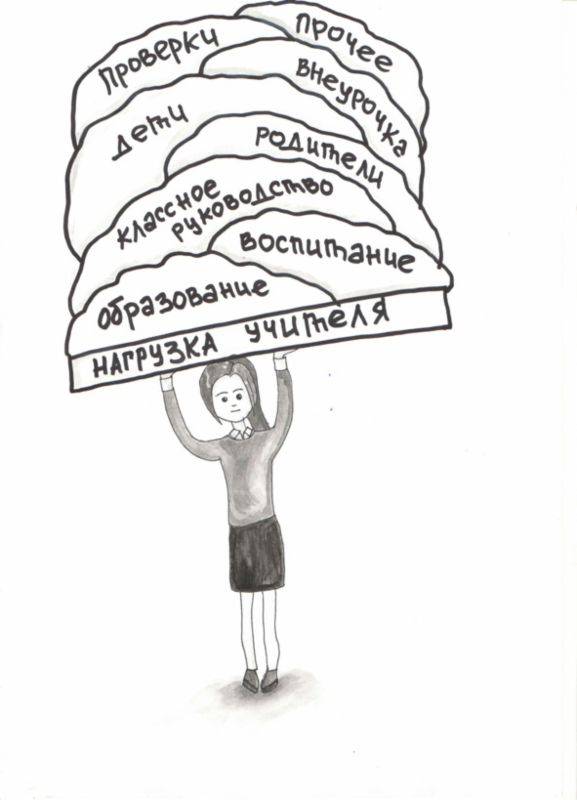 проверки
прочее
внеурочка
дети
родители
классное
руководство
воспитание
образование
НАГРУЗКА УЧИТЕЛЯ